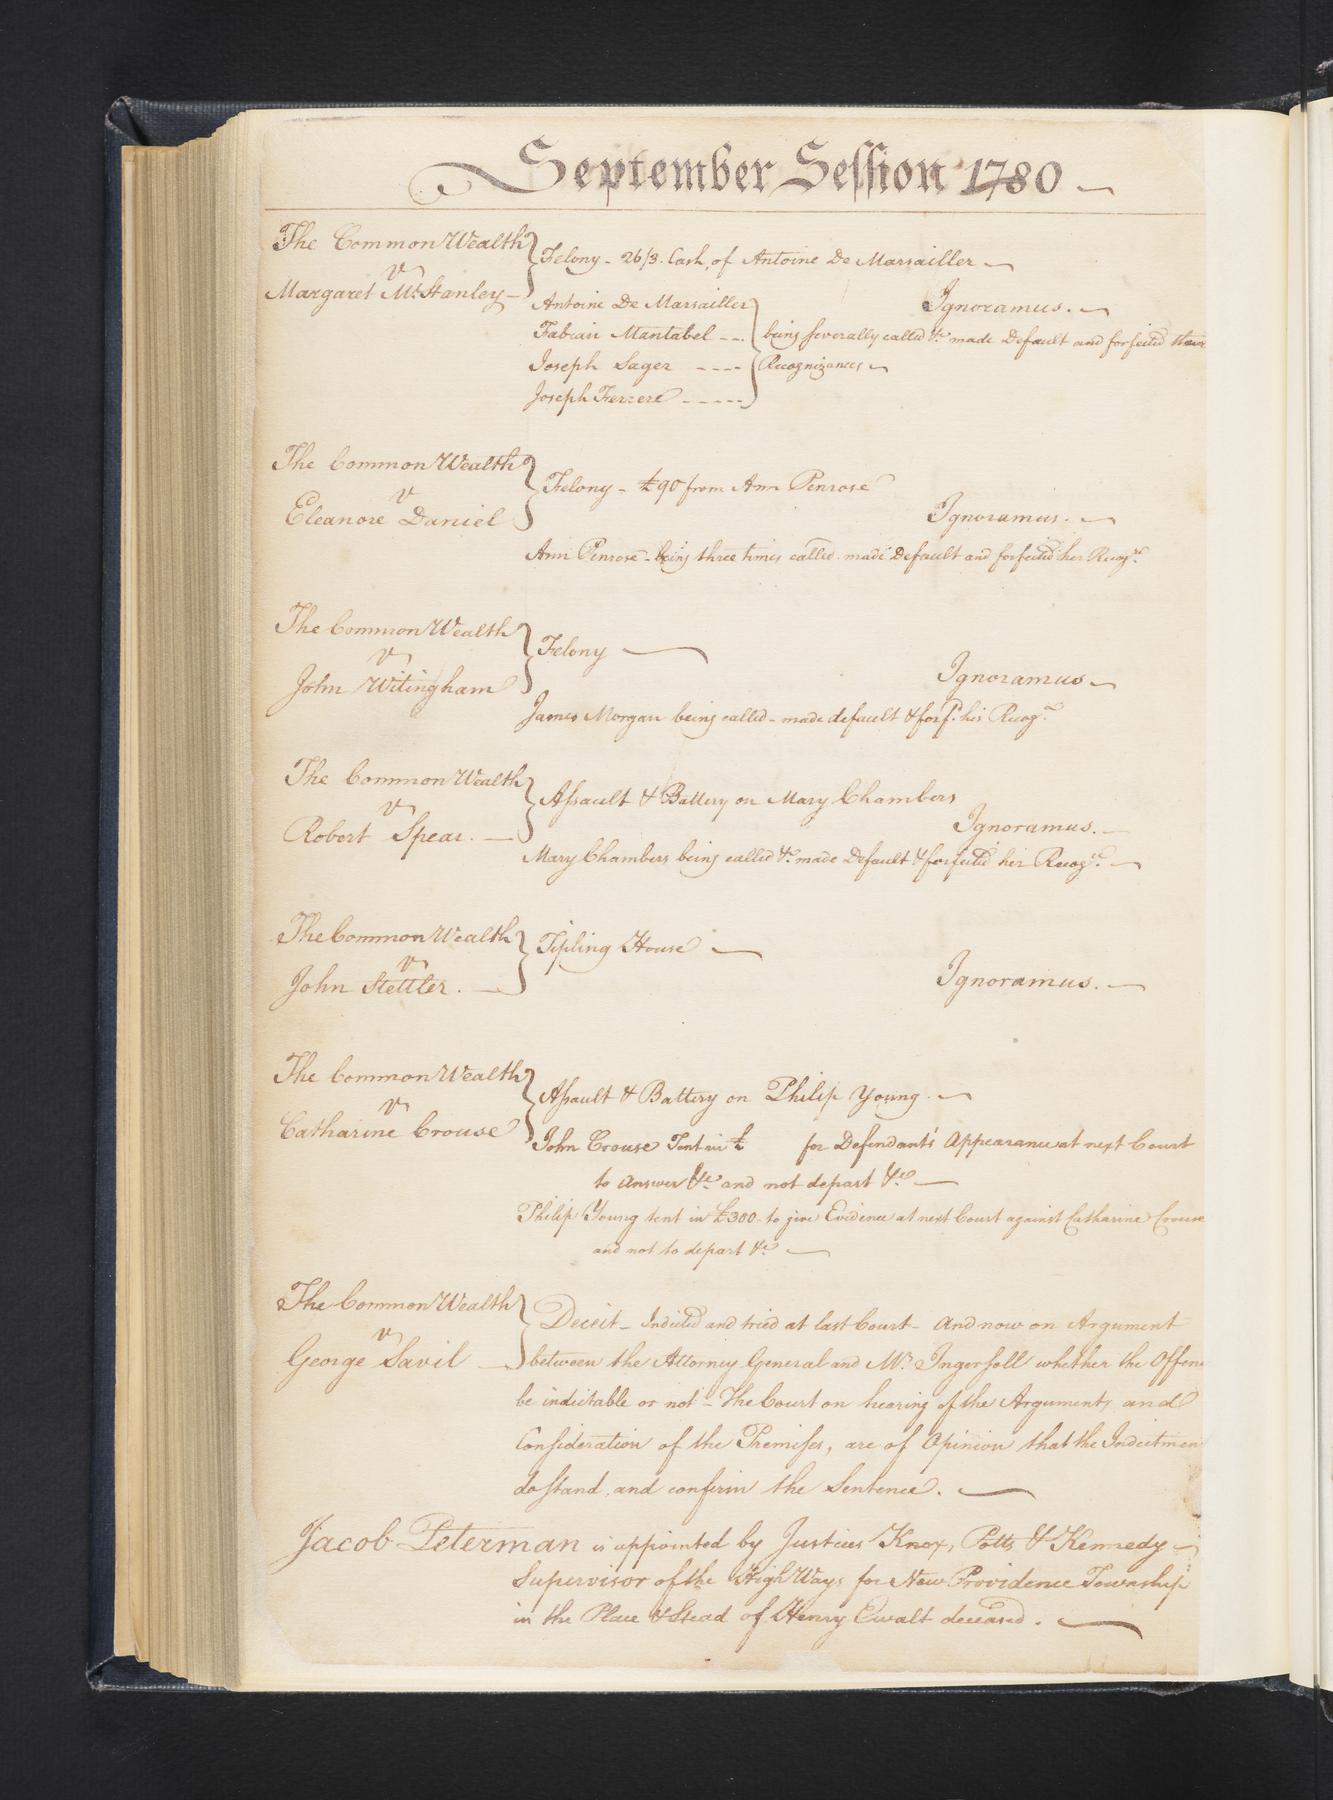 September Session 1780
The CommonWealth
v
Margaret McStanley
Felony - 26/3. Cash, of Antoine De Marsailler
Ignoramus.
Antoine De Marsailler
Fabian Mantabel
Joseph Sager
Joseph Ferrere
being severally called &c. made Default and forfeited their
Recognizances
The CommonWealth
v
Eleanore Daniel
Felony - £90 from Ann Penrose
Ignoramus.
Ann Penrose - being three times called made Default and forfeited her Recogce.
The CommonWealth
v
John Witingham
Felony
Ignoramus
James Morgan being called - made default & forfd. his Recogce.
The CommonWealth
v
Robert Spear.
Assault & Battery on Mary Chambers
Ignoramus.
Mary Chambers being called &c. made Default & forfeited her Recogce.
The CommonWealth
v
John Stettler.
Tipling House
Ignoramus.
The CommonWealth
v
Catharine Crouse
Assault & Battery on Philip Young.
John Crouse Tent in £ for Defendant's Appearance at next Court
to answer &c. and not depart &c.
Philip Young tent in £300 - to give Evidence at next Court against Catharine Crouse
and not to depart &c
The CommonWealth
v
George Savil
Deceit - Indicted and tried at last Court - And now on Argument
between the Attorney General and Mr. Ingersoll whether the Offen
be indictable or not - The Court on hearing of the Arguments and
Consideration of the Premises, are of Opinion that the Indictmen
do stand, and confirm the Sentence.
Jacob Peterman is appointed by Justices Knox, Potts & Kennedy
Supervisor of the High Ways for New Providence Township
in the Place & Stead of Henry Ewalt deceased.